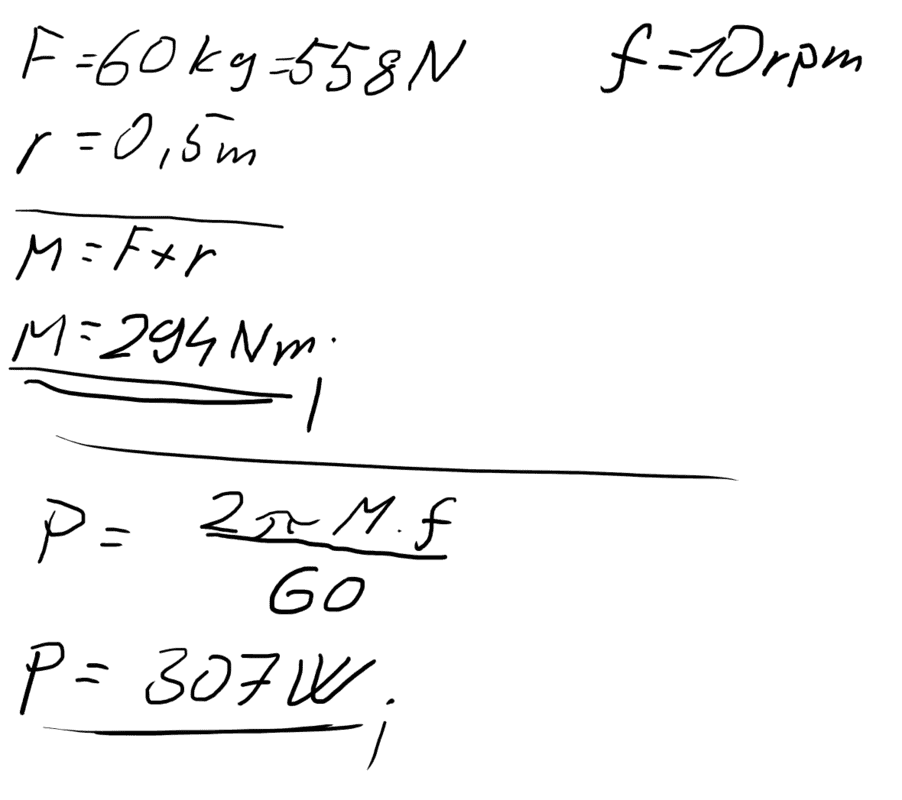 F=60kg=558N f=10rpm
r=0,5m
M=F×r
M=294Nm.
P= 2π M.f
60
P= 307W